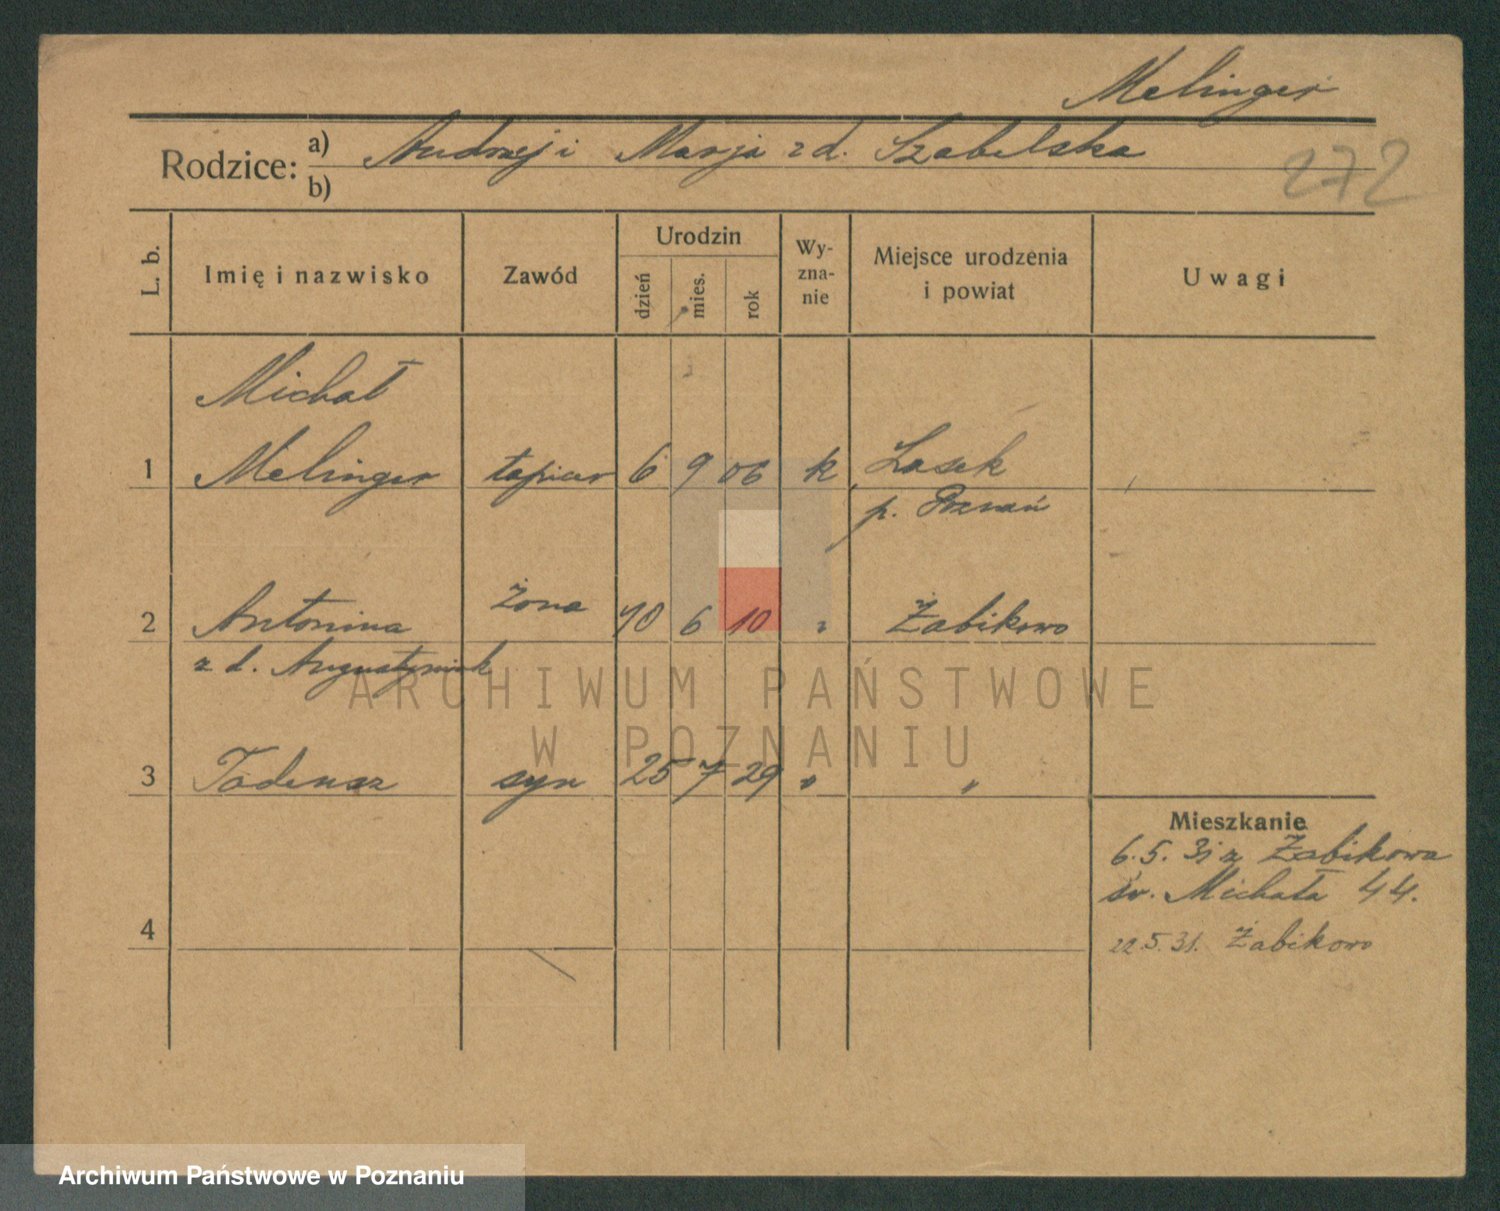 Melinger
Rodzice: a) Andrzej i Marja z d. Szabelska
b)
272
L. b. Imię i nazwisko Zawód Urodzin dzień mies. rok Wy-zna-nie Miejsce urodzenia i powiat Uwagi
Michał
1 Melinger tapicer 6 9 06 k Lasek
p. Poznań
2 Antonina żona 10 6 10 " Żabikowo
z d. Augustyniak
ARCHIWUM PAŃSTWOWE
W POZNANIU
3 Tadeusz syn 25 7 29 " "
Mieszkanie
6.5.31 z Żabikowa
św. Michała 44.
4
22.5.31. Żabikowo
Archiwum Państwowe w Poznaniu